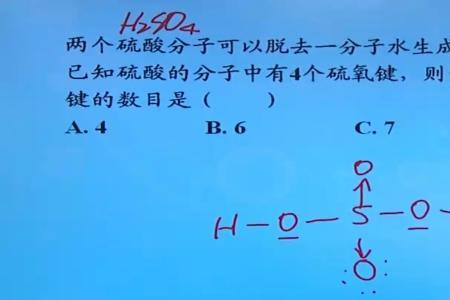 H₂SO₄
两个硫酸分子可以脱去一分子水生成
已知硫酸的分子中有4个硫氧键，则
键的数目是（ ）
A. 4 B. 6 C. 7
O
H - O - S - O -
O